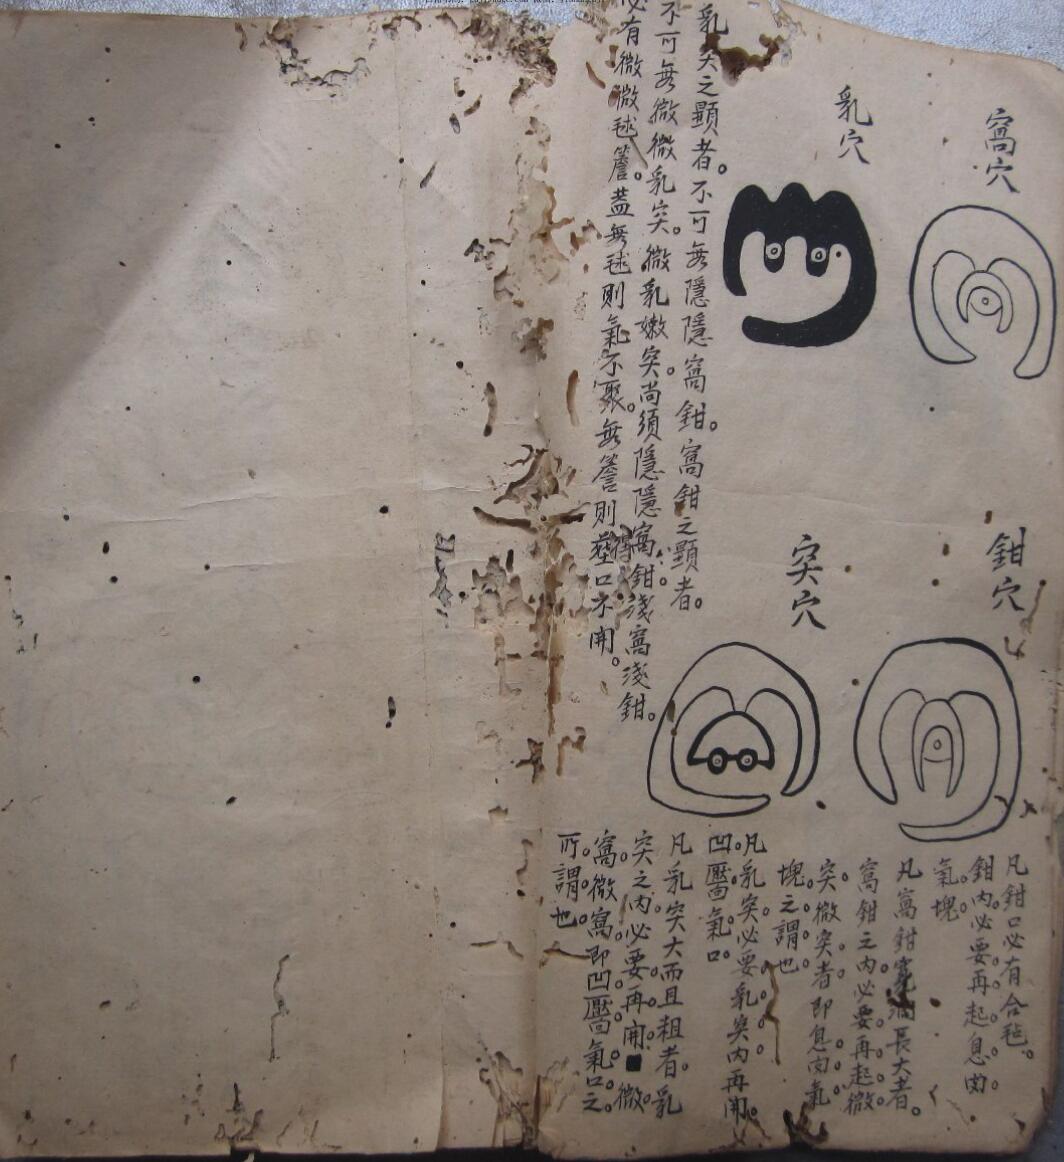 窩穴
乳穴
鉗穴
突穴
凡鉗口必有合毡。
鉗內必要再起息肉。
氣塊。
凡窩鉗寬濶長大者。
窩鉗之內必要再起微
突。微突者即息肉氣
塊之謂也。
凡乳突必要乳突內再開
凹壓氣口。
凡乳突大而且粗者。乳
突之內必要再開微
窩。微窩即凹壓氣口之
所謂也。
乳突之顯者。不可無隱隱窩鉗。窩鉗之顯者。
不可無微微乳突。微乳嫩突。尚須隱隱窩鉗淺窩淺鉗。
必有微微毬簷。蓋無毬則氣不聚。無簷則口不開。